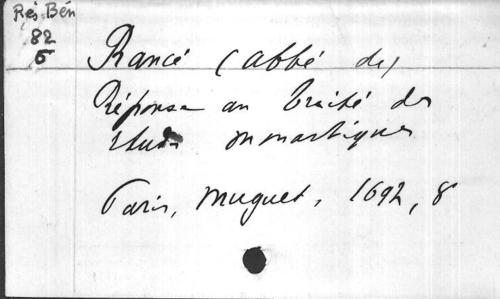 Rés Bén
82
6
Rancé (abbé de)
Réponse au Traité des
études monastiques
Paris, Muguet, 1692, 8°